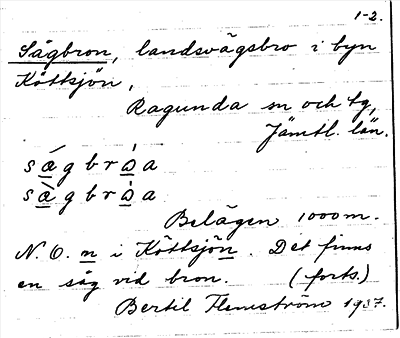 1-2.
Sågbron, landsvägsbro i byn
Köttsjön,
Ragunda sn och tg,
Jämtl. län.
s á g b r á a
s à g b r à a
Belägen 1000 m.
N. O. n i Köttsjön. Det finns
en såg vid bron. (forts.)
Bertil Flemström 1937.